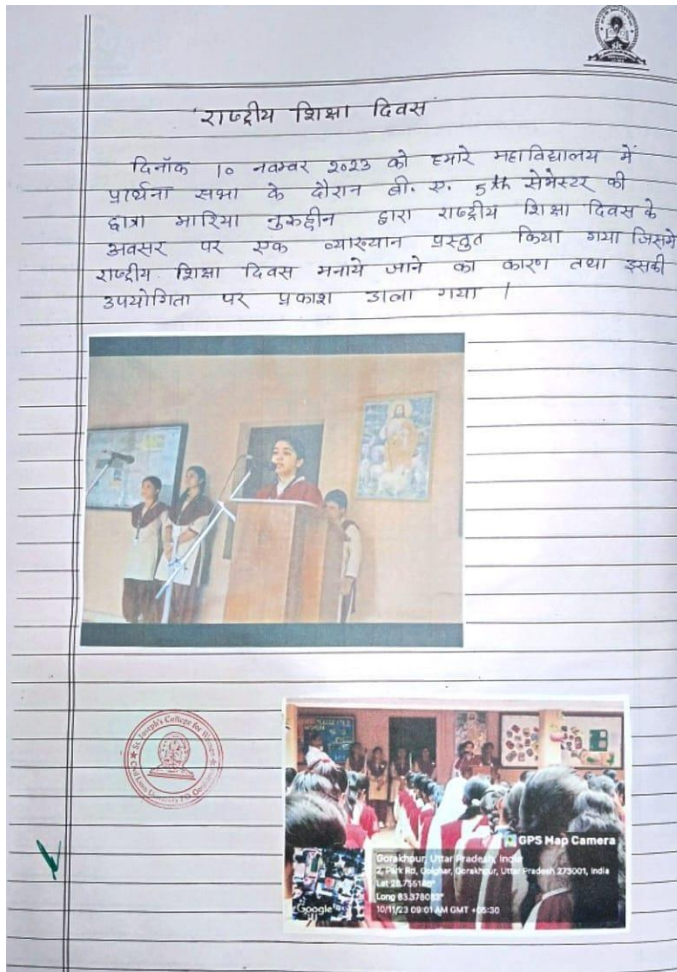 'राष्ट्रीय शिक्षा दिवस'
दिनॉक 10 नवम्बर 2023 को हमारे महाविद्यालय में
प्रार्थना सभा के दौरान बी. ए. 5th सेमेस्टर की
छात्रा मारिया नुरूद्दीन द्वारा राष्ट्रीय शिक्षा दिवस के
अवसर पर एक व्याख्यान प्रस्तुत किया गया जिसमें
राष्ट्रीय शिक्षा दिवस मनाये जाने का कारण तथा इसकी
उपयोगिता पर प्रकाश डाला गया ।
St. Joseph's College for Women
Civil Lines
GPS Map Camera
Gorakhpur, Uttar Pradesh, India
2, Park Rd, Golghar, Gorakhpur, Uttar Pradesh 273001, India
Lat
Long
10/11/23 09:01 AM GMT +05:30
Google